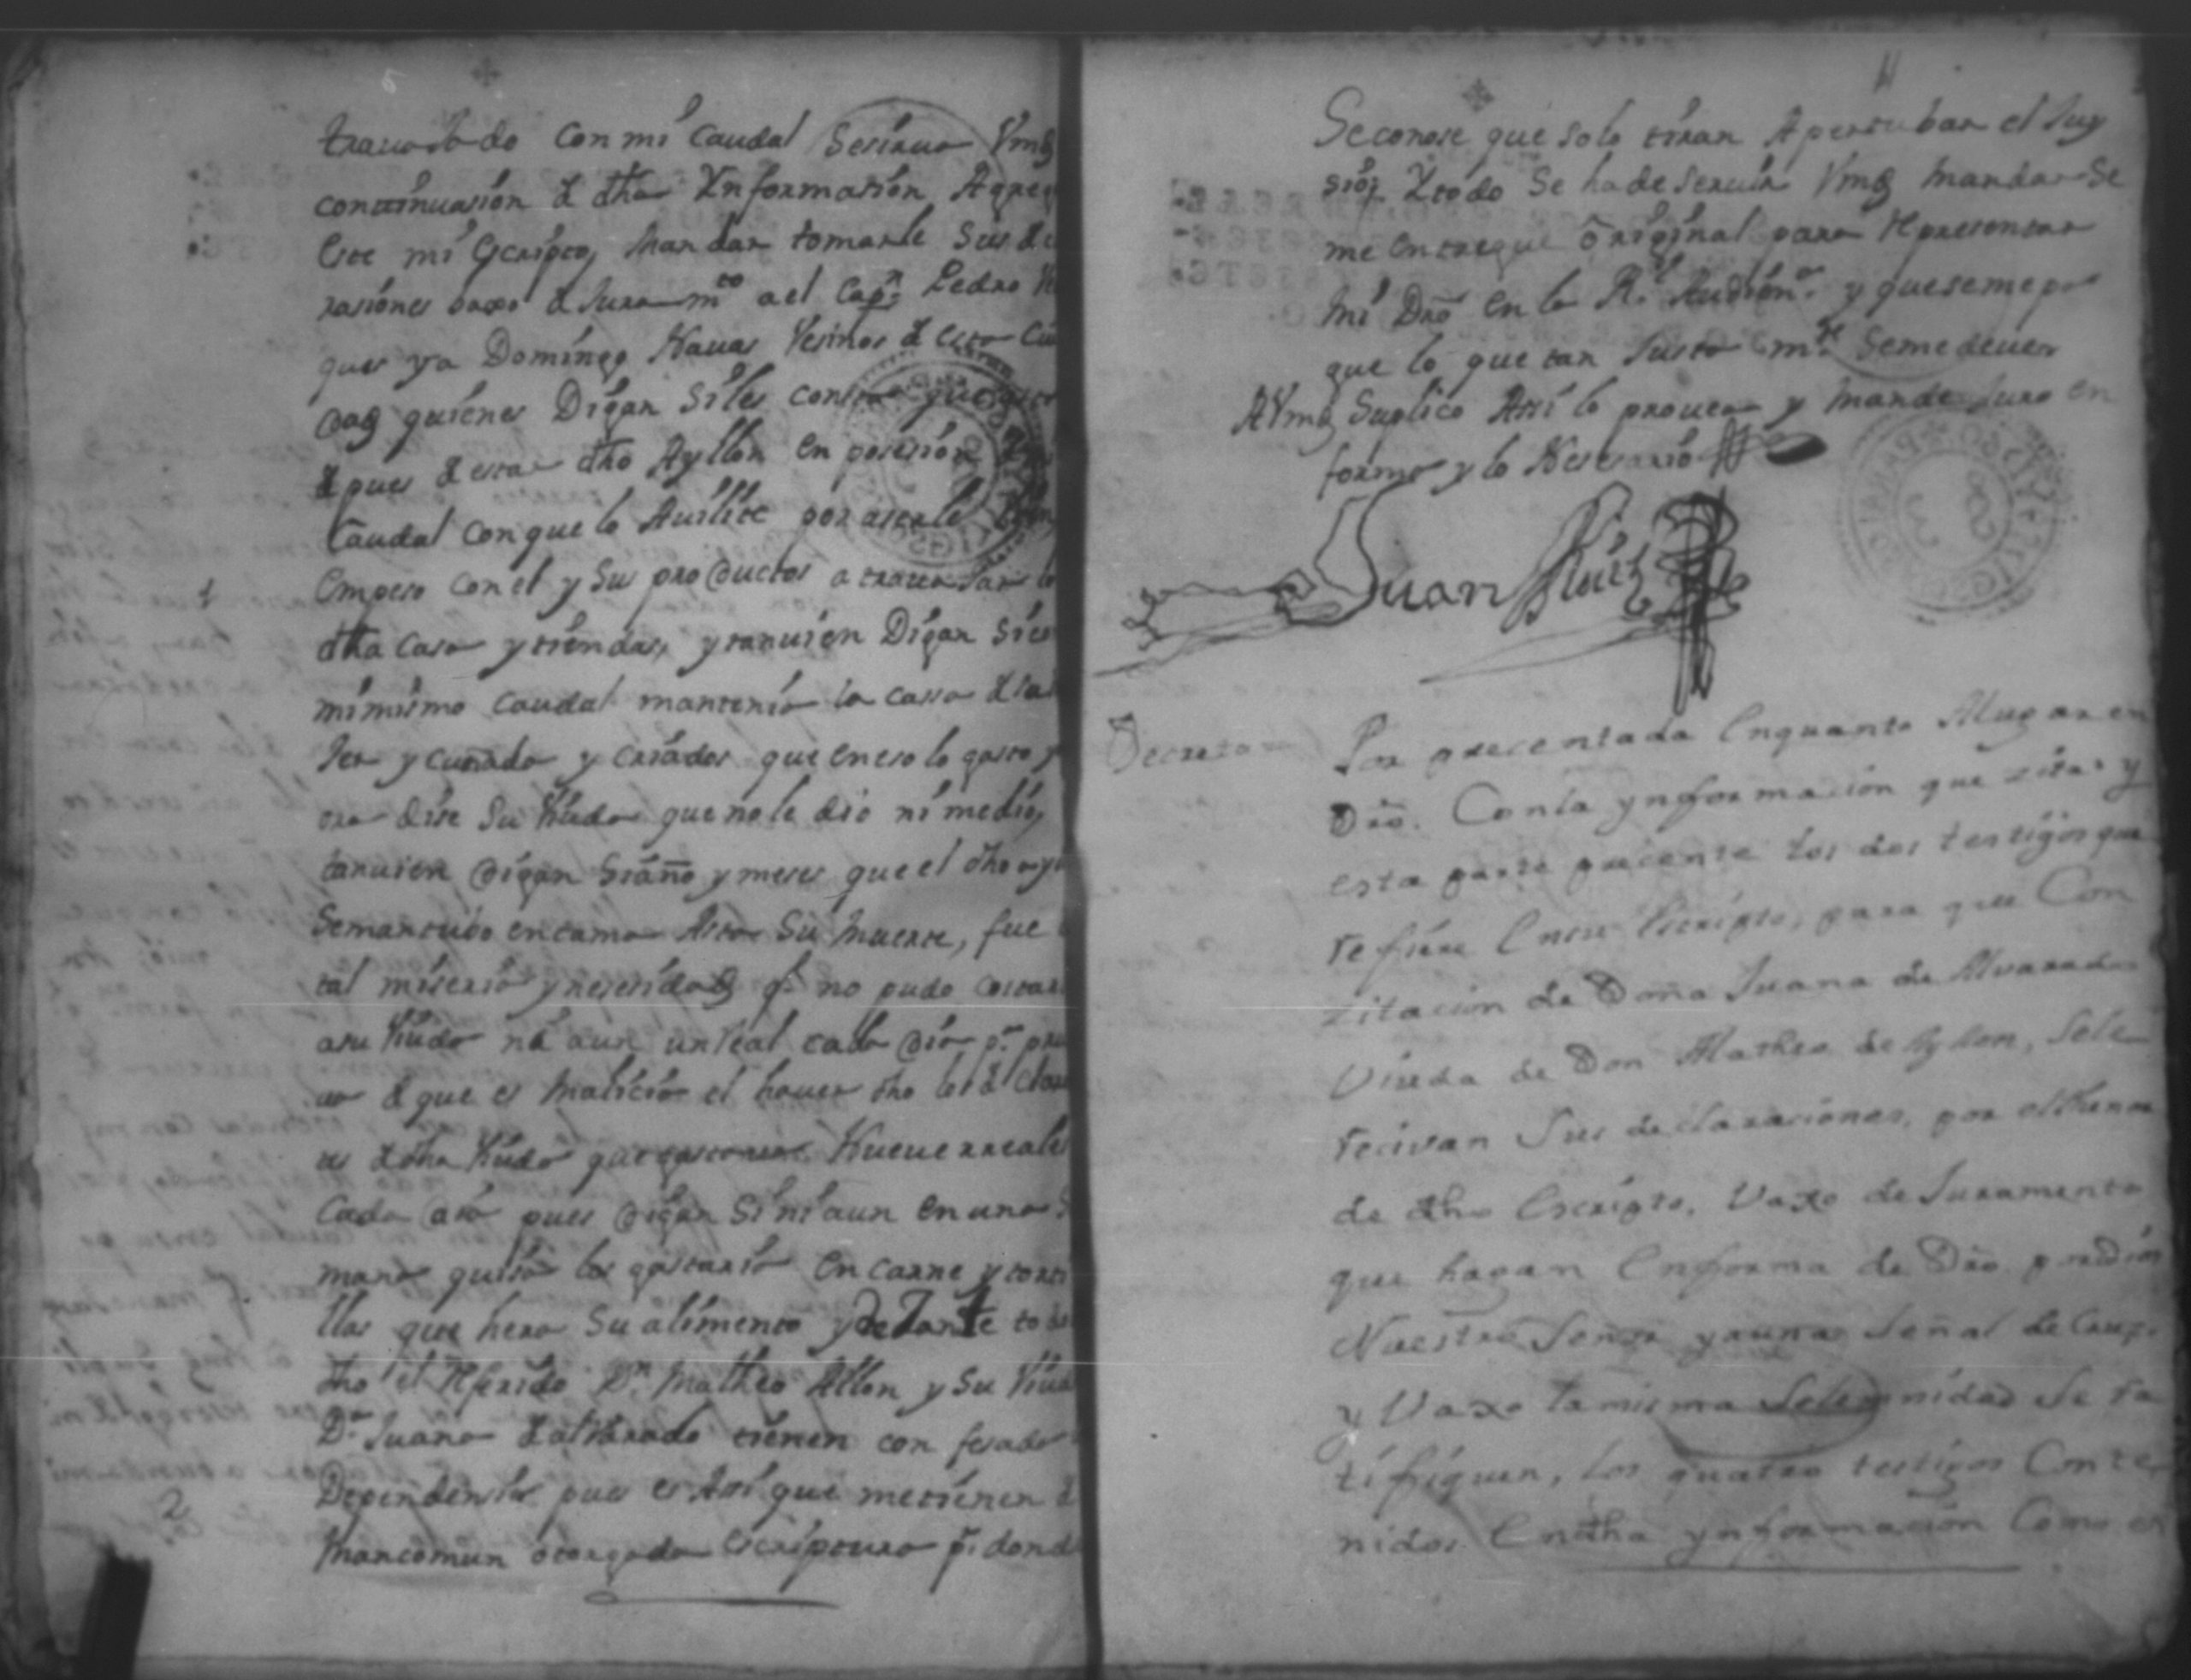 con mi caudal Serirua Vmd
continuasion d dha Ynformasion
este mi escripto, mandar tomarle Sus de
rasiones baxo d Juramto a el Capn Pedro
ques ya Domingo Nauas Vesinos d esta Ciu
dad quienes Digan Siles consta que
dpues d estar dho Ayllon en posesion
Caudal con que lo Auilite por aserle
Empeso con el y Su productos a
dha Casa y tiendas, y tanuien Digan Si
mimismo Caudal mantenia la cassa d la
Jer y cuñada y criados que en eso lo gasto y
ora dise Su Viuda que no le dio ni medio,
tanuien digan Siaño y meses que el dho ay
Semantubo en cama Asta Su muerte, fue
tal miseria y nesesidad q no pudo
asu Viuda ni aun un Real cada dia pa
ua d que es malicia el hauer dho
es d dha Viuda que Nueue rreales
Cada dia pues digan Si ni aun en una Se
mana quisa los gastaria en carne y torti
llas que hera Su alimento y
dho el Referido Dn Matheo Allon y Su Viuda
Da Juana d albarado tienen con fesado
Dependensia pues es Asi que metienen d
mancomun otorgada escriptura pr donde
1
2
Se conose que solo tiran Aperturbar el Juy
sio, Ytodo Se ha de Seruir Vmd mandar Se
me entregue original para Representar
mi Dro en la Rl Audiona y que se me
que lo que tan Justa mte Se me deue
A Vmd Suplico Assi lo prouea y mande Juro en
forma y lo Nesesario
Juan Ruiz
Decreto
Por precentada enquanto Alugar en
Dro. Con la ynformacion que sita y
esta parte precente los dos testigos que
refiere en su Escripto, para que Con
zitacion de Doña Juana de Alvarado
Viuda de Don Matheo de Ayllon, Sele
recivan Sus declarasiones, por el thenor
de dho Escripto, Vaxo de Juramento
que hagan en forma de Dro. por Dios
Nuestro Señor y a una Señal de Cruz.
y Vaxo la misma Solemnidad Se ra
tifiquen, los quatro testigos Conte
nidos en dha ynformacion Como en